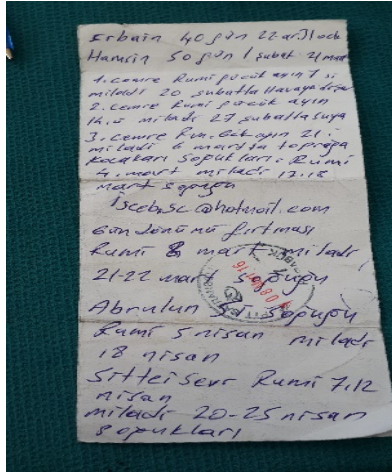 Erbain 40 gün 22 ar. 31 ocak
Hamsin 50 gün 1 şubat 21 mart
1. cemre Rumi gücük ayın 7 si
miladi 20 şubatta Havaya düşer
2. cemre Rumi gücük ayın
14.ü miladi 27 şubatta suya
3. cemre Rm. ayın 21.
miladi 6 martta toprağa
Kocakarı soğukları. Rumi
4. mart miladi 17.18
mart soğuğu
@hotmail.com
Gün dönümü fırtması
Rumi 8 mart miladi
21-22 mart soğuğu
Abrulun soğuğu
Rumi 5 nisan miladi
18 nisan
Sittei Sevr Rumi 7.12
nisan
miladi 20-25 nisan
soğukları